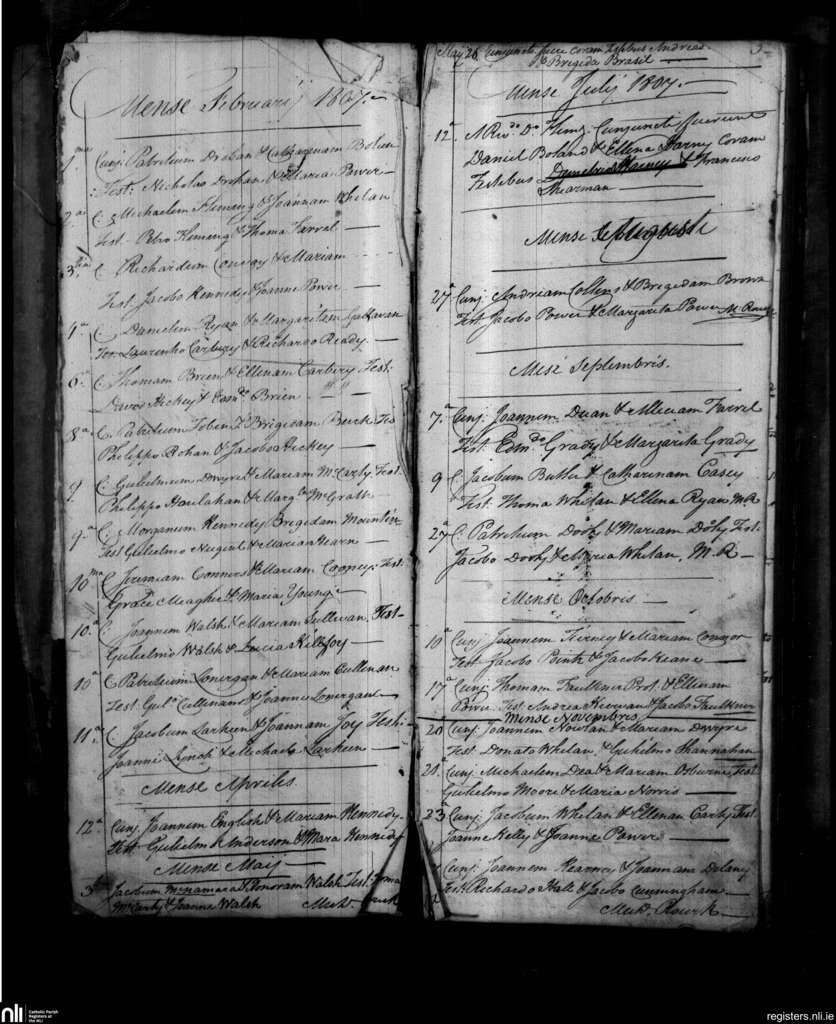 Mense Februarij 1807.
1mo Cunj. Patritium Drohan & Catharinam Bolan
Test. Nicholao Drohan & Maria Power
2a C. Michaelem Flemeng & Joannam Whelan
Test. Petro Flemeng & Thoma Farrel
C. Richardum Convoy & Mariam
Test. Jacobo Kennedy & Joanne Power
4a C. Danielem Ryan & Margaritam Gallavan
Laurentio Carbury & Richardo Ready
6a C. Thomam Brien & Ellenam Carbery Test.
David Hickey & Edmdo Brien
8a C. Patritium Tobin & Brigidam Burk Tes
Philippo Bohan & Jacobo Hickey
9 C. Gulielmum Dwyre & Mariam McCarty Test.
Philippo Houlahan & Marg. McGrath
9a C. Morganum Kennedy Bregedam Mountin
Test Gulielmo Nugent & Maria Hearn
10ma C. Jerimiam Connors & Mariam Cooney. Test.
Grace Meagher & Maria Young
10a C. Joannem Walsh & Mariam Sullivan Test
Gulielmo Walsh & Lucia Killfoy
10a C. Patritium Lonergan & Mariam Cullenan
Test. Gulo Cullenan & Joanne Lonergan
11a C. Jacobum Larken & Joannam Joy Test.
Joanne Lynch & Michaele Larken
Mense Aprilis
12a Cunj. Joannem English & Mariam Kennedy
Test Gulielmo Anderson & Mara Kennedy
Mense May
Jacobum McNamara & Honoram Walsh Test. Thoma
McCarty & Joanne Walsh
May 26 Cunjuncti fuere coram testibus Andreas
& Bregida Brasil
Mense Julij 1807.
12a A Rdo Do Flemg Cunjuncti fuerunt
Daniel Boland & Ellena Darny Coram
Testibus & Francisco
Shearman
Mense Augusti
27a Cunj. Andream Collins & Bregedam Brown
Test Jacobo Power & Margarita Power M. Rourk
Mese Septembris.
7a Cunj. Joannem Duan & Mariam Farrel
Test. Edmdo Grady & Margarita Grady
9 C. Jacobum Butler & Catharinam Casey
Test. Thoma Whelan & Ellena Ryan M.R
27a C. Patritium Dooly & Mariam Dohy Test.
Jacobo Dooly & Maria Whelan. M.R
Mense Octobris
10a Cunj Joannem Kirney & Mariam Connor
Test Jacobo Pointh & Jacobo Keane
17a Cunj. Thomam Faulkner Prot. & Elleniam
Power. Test Andrea Kerwan & Jacobo Faulkner
Mense Novembris
20 Cunj. Joannem Nowlan & Mariam Dwyre
Test. Donato Whelan, & Gulielmo Shannahan
21a Cunj. Michaelem Dea & Mariam Osburne Test.
Gulielmo Moore & Maria Norris
23a Cunj. Jacobum Whelan & Ellenam Carty Test
Joanne Kelly & Joanne Power
Cunj. Joannem Kearney & Joannam Delany
Test Richardo Hall & Jacobo Cunningham
Mich. Rourk
nli Catholic Parish
Registers at
the NLI
registers.nli.ie